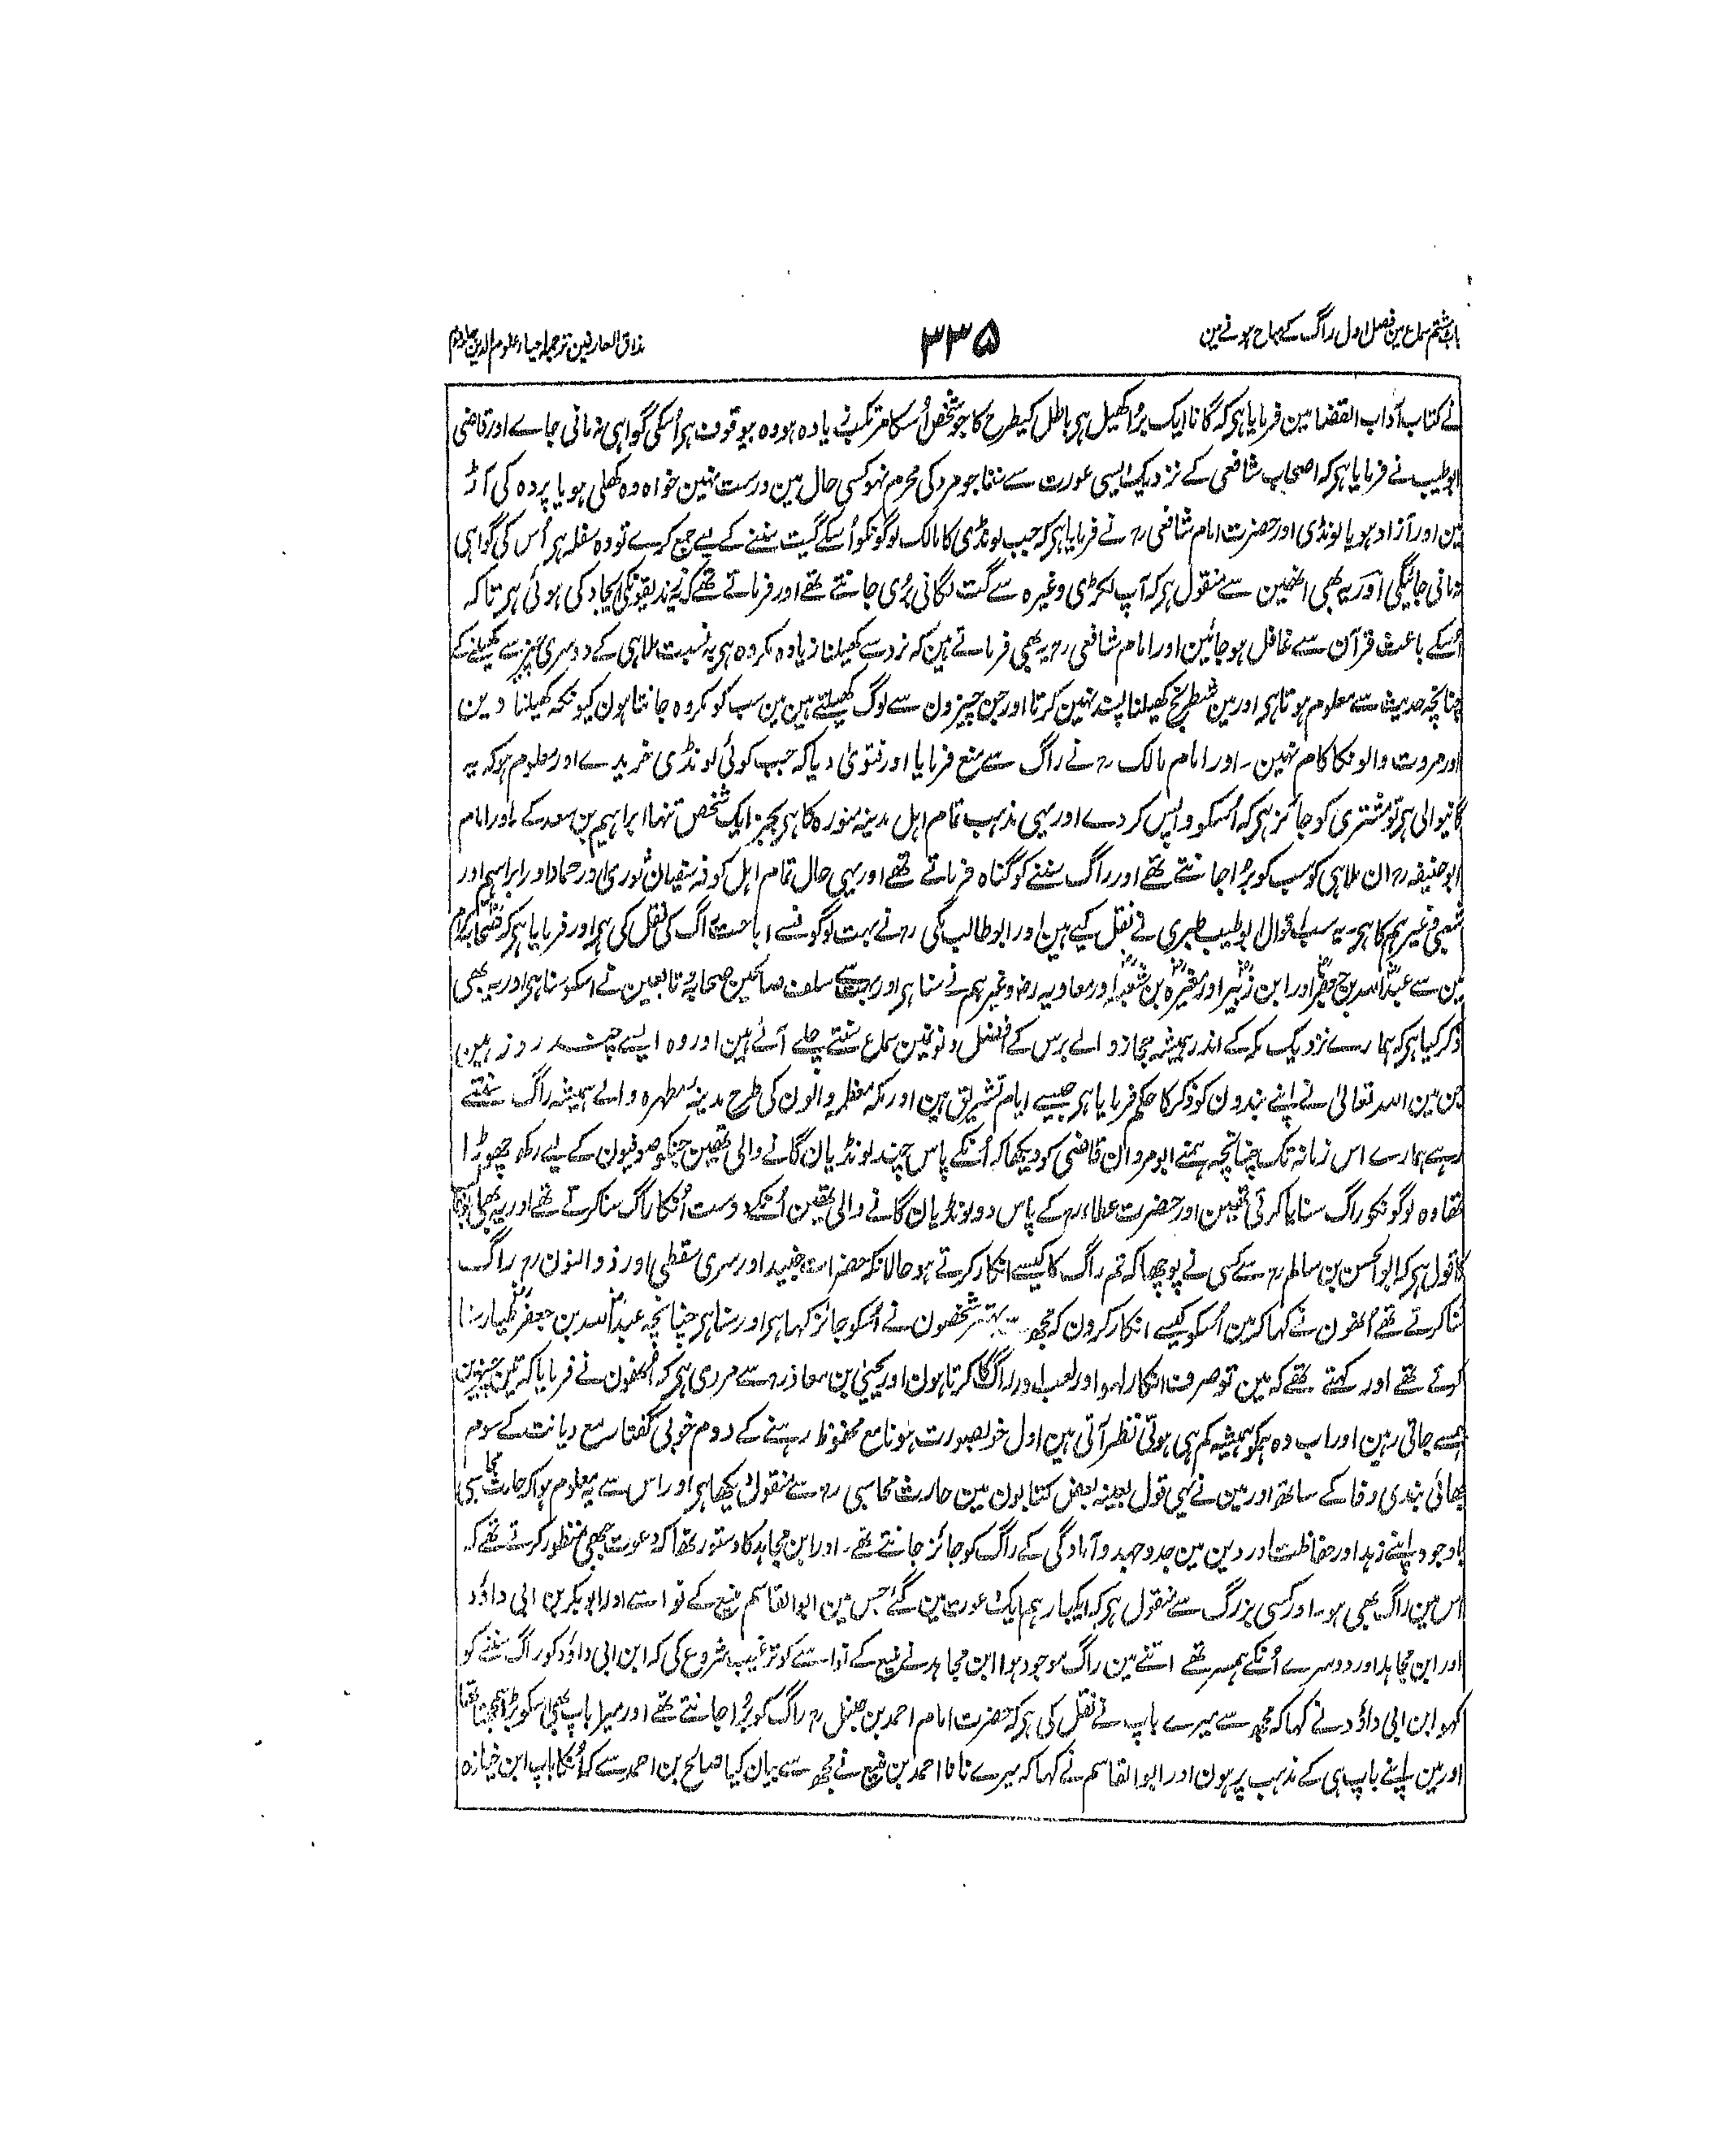 باب ہشتم سماع مین فصل اول راگ کے مباح ہونے مین
۳۳۵
مذاق العارفین ترجمہ احیاء علوم الدین جلد دوم
نے کتاب آداب القضا مین فرمایا ہر کہ گانا ایک بُرا کھیل ہر باطل کیطرح کا جو شخص اُسکا مرتکب زیادہ ہو وہ بیوقوف ہر اُسکی گواہی نہ مانی جاے اور قاضی
ابو طیب نے فرمایا ہر کہ اصحاب شافعی کے نزدیک ایسی عورت سے سننا جو مرد کی محرم نہو کسی حال مین درست نہین خواہ وہ کھلی ہو یا پردہ کی آڑ
مین اور آزاد ہو یا لونڈی اور حضرت امام شافعی رہ نے فرمایا ہر کہ جب لونڈی کا مالک لوگونکو اُسکے گیت سننے کے لیے جمع کرے تو وہ سفلہ ہر اُس کی گواہی
نہ مانی جائیگی اور یہ بھی انھین سے منقول ہر کہ آپ لکڑی وغیرہ سے گت لگانی بُری جانتے تھے اور فرماتے تھے کہ یہ زندیقونکی ایجاد کی ہوئی ہر تاکہ
اُسکے باعث قرآن سے غافل ہو جائین اور امام شافعی رہ یہ بھی فرماتے ہین کہ نرد سے کھیلنا زیادہ مکروہ ہر بہ نسبت ملاہی کے دوسری چیز سے کھیلنے کے
چنانچہ حدیث سے معلوم ہوتا ہر اور مین شطرنج کھیلنا پسند نہین کرتا اور جن چیزون سے لوگ کھیلتے ہین مین سب کو مکروہ جانتا ہون کیونکہ کھیلنا دین
اور مروت والونکا کام نہین ۔ اور امام مالک رہ نے راگ سے منع فرمایا اور فتویٰ دیا کہ جب کوئی لونڈی خریدے اور معلوم ہو کہ یہ
گانیوالی ہر تو مشتری کو جائز ہر کہ اُسکو واپس کردے اور یہی مذہب تمام اہل مدینہ منورہ کا ہر بجز ایک شخص تنہا ابراہیم بن سعد کے ۔ اور امام
ابو حنیفہ رہ ان ملاہی کو سب کو بُرا جانتے تھے اور راگ سننے کو گناہ فرماتے تھے اور یہی حال تمام اہل کوفہ سفیان ثوری اور حماد اور ابراہیم اور
شعبی وغیرہم کا ہر ۔ یہ سب اقوال ابو طیب طبری نے نقل کیے ہین اور ابو طالب مکی رہ نے بہت لوگونسے اباحت راگ کی نقل کی ہر اور فرمایا ہر کہ صحابہ کرام
مین سے عبد اللہ بن جعفر اور ابن زبیر اور مغیرہ بن شعبہ اور معاویہ رض وغیرہم نے سنا ہر اور بہت سے سلف صالحین صحابہ و تابعین نے اسکو سنا ہر اور یہ بھی
ذکر کیا ہر کہ ہمارے نزدیک مکہ کے اندر ہمیشہ حجاز والے برس کے افضل دنونمین سماع سنتے چلے آئے ہین اور وہ ایسے چند روز ہین
جن مین اللہ تعالیٰ نے اپنے بندون کو ذکر کا حکم فرمایا ہر جیسے ایام تشریق ہین اور مکہ معظمہ والون کی طرح مدینہ مطہرہ والے ہمیشہ راگ سنتے
رہے ہمارے اس زمانہ تک چنانچہ ہمنے ابو مروان قاضی کو دیکھا کہ اُنکے پاس چند لونڈیان گانے والی تھین جنکو صوفیون کے لیے رکھ چھوڑا
تھا وہ لوگونکو راگ سنایا کرتی تھین اور حضرت عطاء رہ کے پاس دو لونڈیان گانے والی تھین اُنکے دوست اُنکا راگ سنا کرتے تھے اور یہ بھی
کا قول ہر کہ ابو الحسن بن سالم رہ سے کسی نے پوچھا کہ تم راگ کا کیسے انکار کرتے ہو حالانکہ حضرات جنید اور سری سقطی اور ذوالنون رہ راگ
سنا کرتے تھے اُنھون نے کہا کہ مین اُسکو کیسے انکار کرون کہ مجھ سے بہتر شخصون نے اُسکو جائز کہا ہر اور سنا ہر چنانچہ عبد اللہ بن جعفر طیار سنا
کرتے تھے اور کہتے تھے کہ مین تو صرف انکار لہو اور لعب اور راگ کا کرتا ہون اور یحییٰ بن معاذ رہ سے مروی ہر کہ اُنھون نے فرمایا کہ تین چیزین
ہمسے جاتی رہین اور اب وہ ہمکو ہمیشہ کم ہی ہوتی نظر آتی ہین اول خوبصورت ہونا مع محفوظ رہنے کے دوم خوبی گفتار مع دیانت کے سوم
بھائی بندی وفا کے ساتھ اور مین نے یہی قول بعینہ بعض کتابون مین حارث محاسبی رہ سے منقول دیکھا ہر اور اس سے یہ معلوم ہوا کہ حارث محاسبی
باوجود اپنے زہد اور حفاظت اور دین مین جد و جہد و آمادگی کے راگ کو جائز جانتے تھے ۔ اور ابن مجاہد کا دستور تھا کہ دعوت جبھی منظور کرتے تھے کہ
اس مین راگ بھی ہو ۔ اور کسی بزرگ سے منقول ہر کہ ایکبار ہم ایک دعوت مین گئے جس مین ابو القاسم منیع کے نواسے اور ابو بکر بن ابی داؤد
اور ابن مجاہد اور دوسرے اُنکے ہمسر تھے اتنے مین راگ موجود ہوا ابن مجاہد نے منیع کے نواسے کو ترغیب شروع کی کہ ابن ابی داؤد کو راگ سننے کو
کہو ابن ابی داؤد نے کہا کہ مجھ سے میرے باپ نے نقل کی ہر کہ حضرت امام احمد بن حنبل رہ راگ کو بُرا جانتے تھے اور میرا باپ بھی اسکو بُرا سمجھتا تھا
اور مین اپنے باپ ہی کے مذہب پر ہون اور ابو القاسم نے کہا کہ میرے نانا احمد بن منیع نے مجھ سے بیان کیا صالح بن احمد سے کہ اُنکا باپ ابن خبازہ